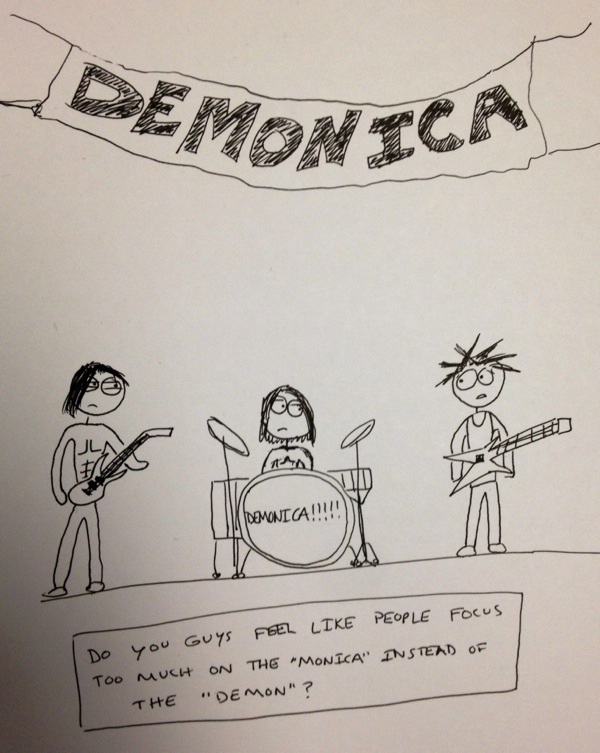 DEMONICA
DEMONICA!!!!!
DO YOU GUYS FEEL LIKE PEOPLE FOCUS
TOO MUCH ON THE "MONICA" INSTEAD OF
THE "DEMON"?